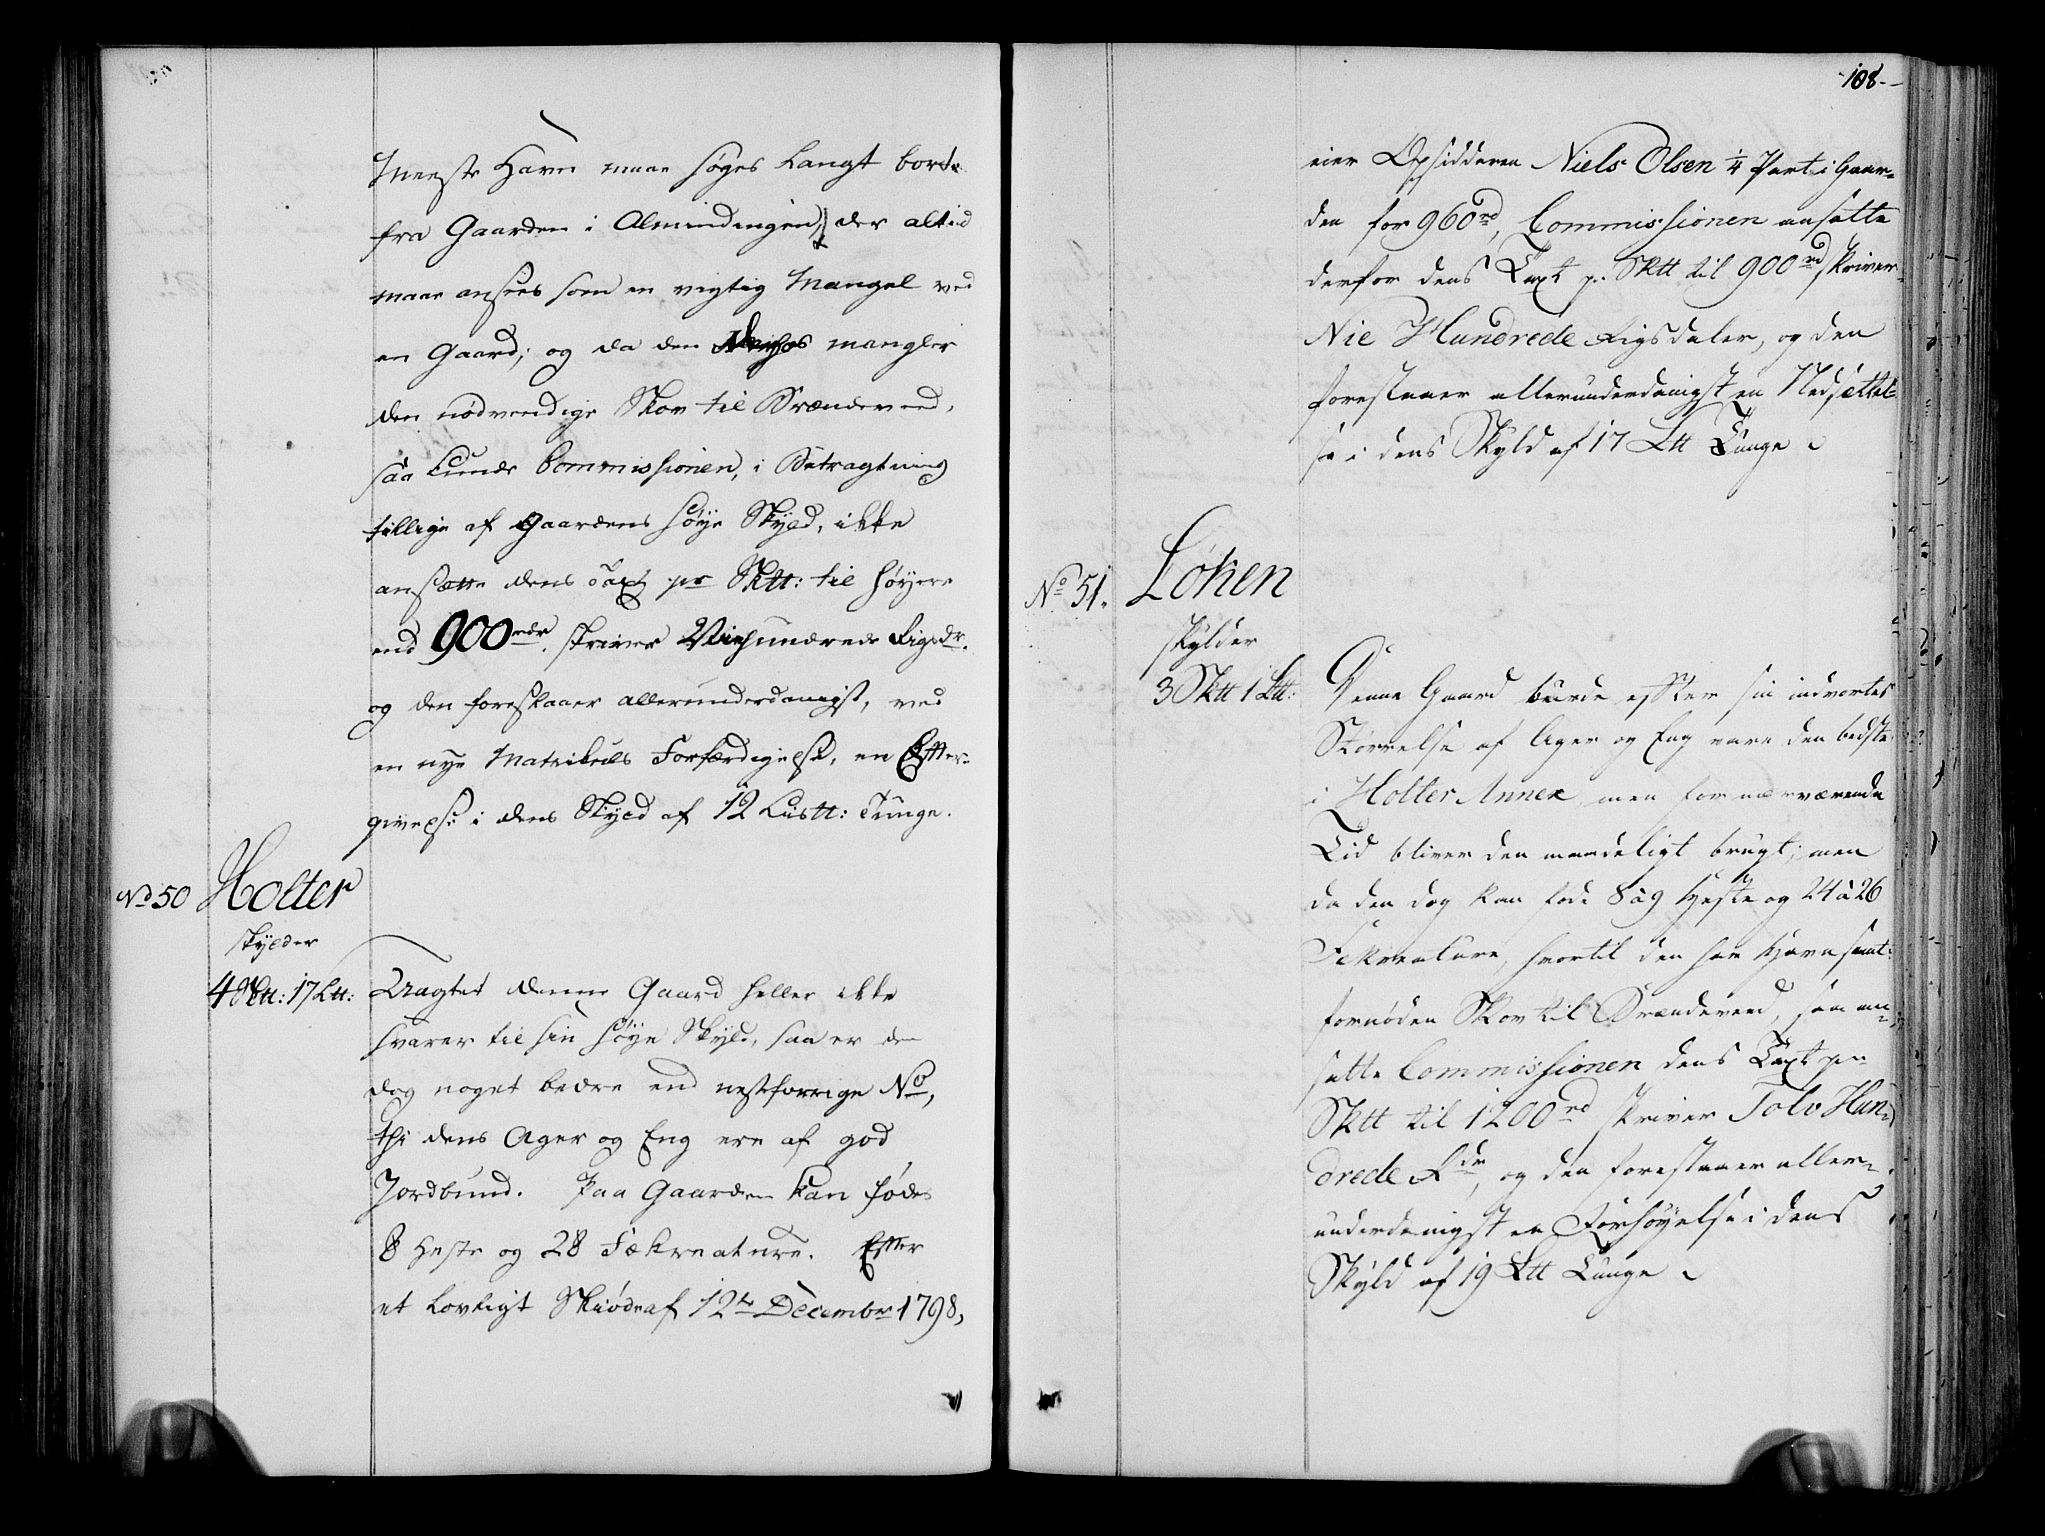 Meeste Havn maae søges Langt borte
fra Gaarden i Almindingen, der altid
maae ansees som en vigtig Mangel ved
en Gaard; og da den mangler
den nødvendige Skov til Brændeved,
saa kunde Commissionen, i Betragtning
tillige af Gaardens høye Skyld, ikke
ansætte dens Taxt pr Sktt: til høyere
end 900 rdr. skriver Niehundrede Rigsdr.
og den foreslaaer allerunderdanigst, ved
en nye Matrikuls Forfærdigelse, en Efter-
givelse i dens Skyld af 12 Listt: Tunge.
No 50 Holter
skylder
4 Sktt: 17 Ltt:
Uagtet denne Gaard heller ikke
svarer til sin høye Skyld, saa er den
dog noget bedre end nestforrige No,
thi dens Ager og Eng ere af god
Jordbund. Paa Gaarden kan fødes
8 Heste og 28 Fækreature. Efter
et Lovligt Skiøde af 12te Decembr 1798,
108.
eier Opsidderen Niels Olsen 1/4 Part i Gaar-
den for 960 rd, Commissionen ansatte
derfor dens Taxt pr Sktt til 900 rd skriver
Nie Hundrede Rigsdaler, og den
forestaaer allerunderdanigst en Nedsættel-
se i dens Skyld af 17 Ltt Tunge
No 51. Løken
skylder
3 Sktt 1 Ltt:
Denne Gaard burde efter sin indvortes
Størrelse af Ager og Eng være den bedste
i Holter Annex, men for nærværende
Tid bliver den maadeligt brugt; men
da den dog kan føde 8 à 9 Heste og 24 à 26
Fækreature, hvortil den har Havn samt
fornøden Skov til Brændeved, saa an-
satte Commissionen dens Taxt pr
Sktt til 1200 rd skriver Tolv Hun-
drede Rdr, og den forestaaer aller-
underdanigst en Forhøyelse i dens
Skyld af 19 Ltt Tunge